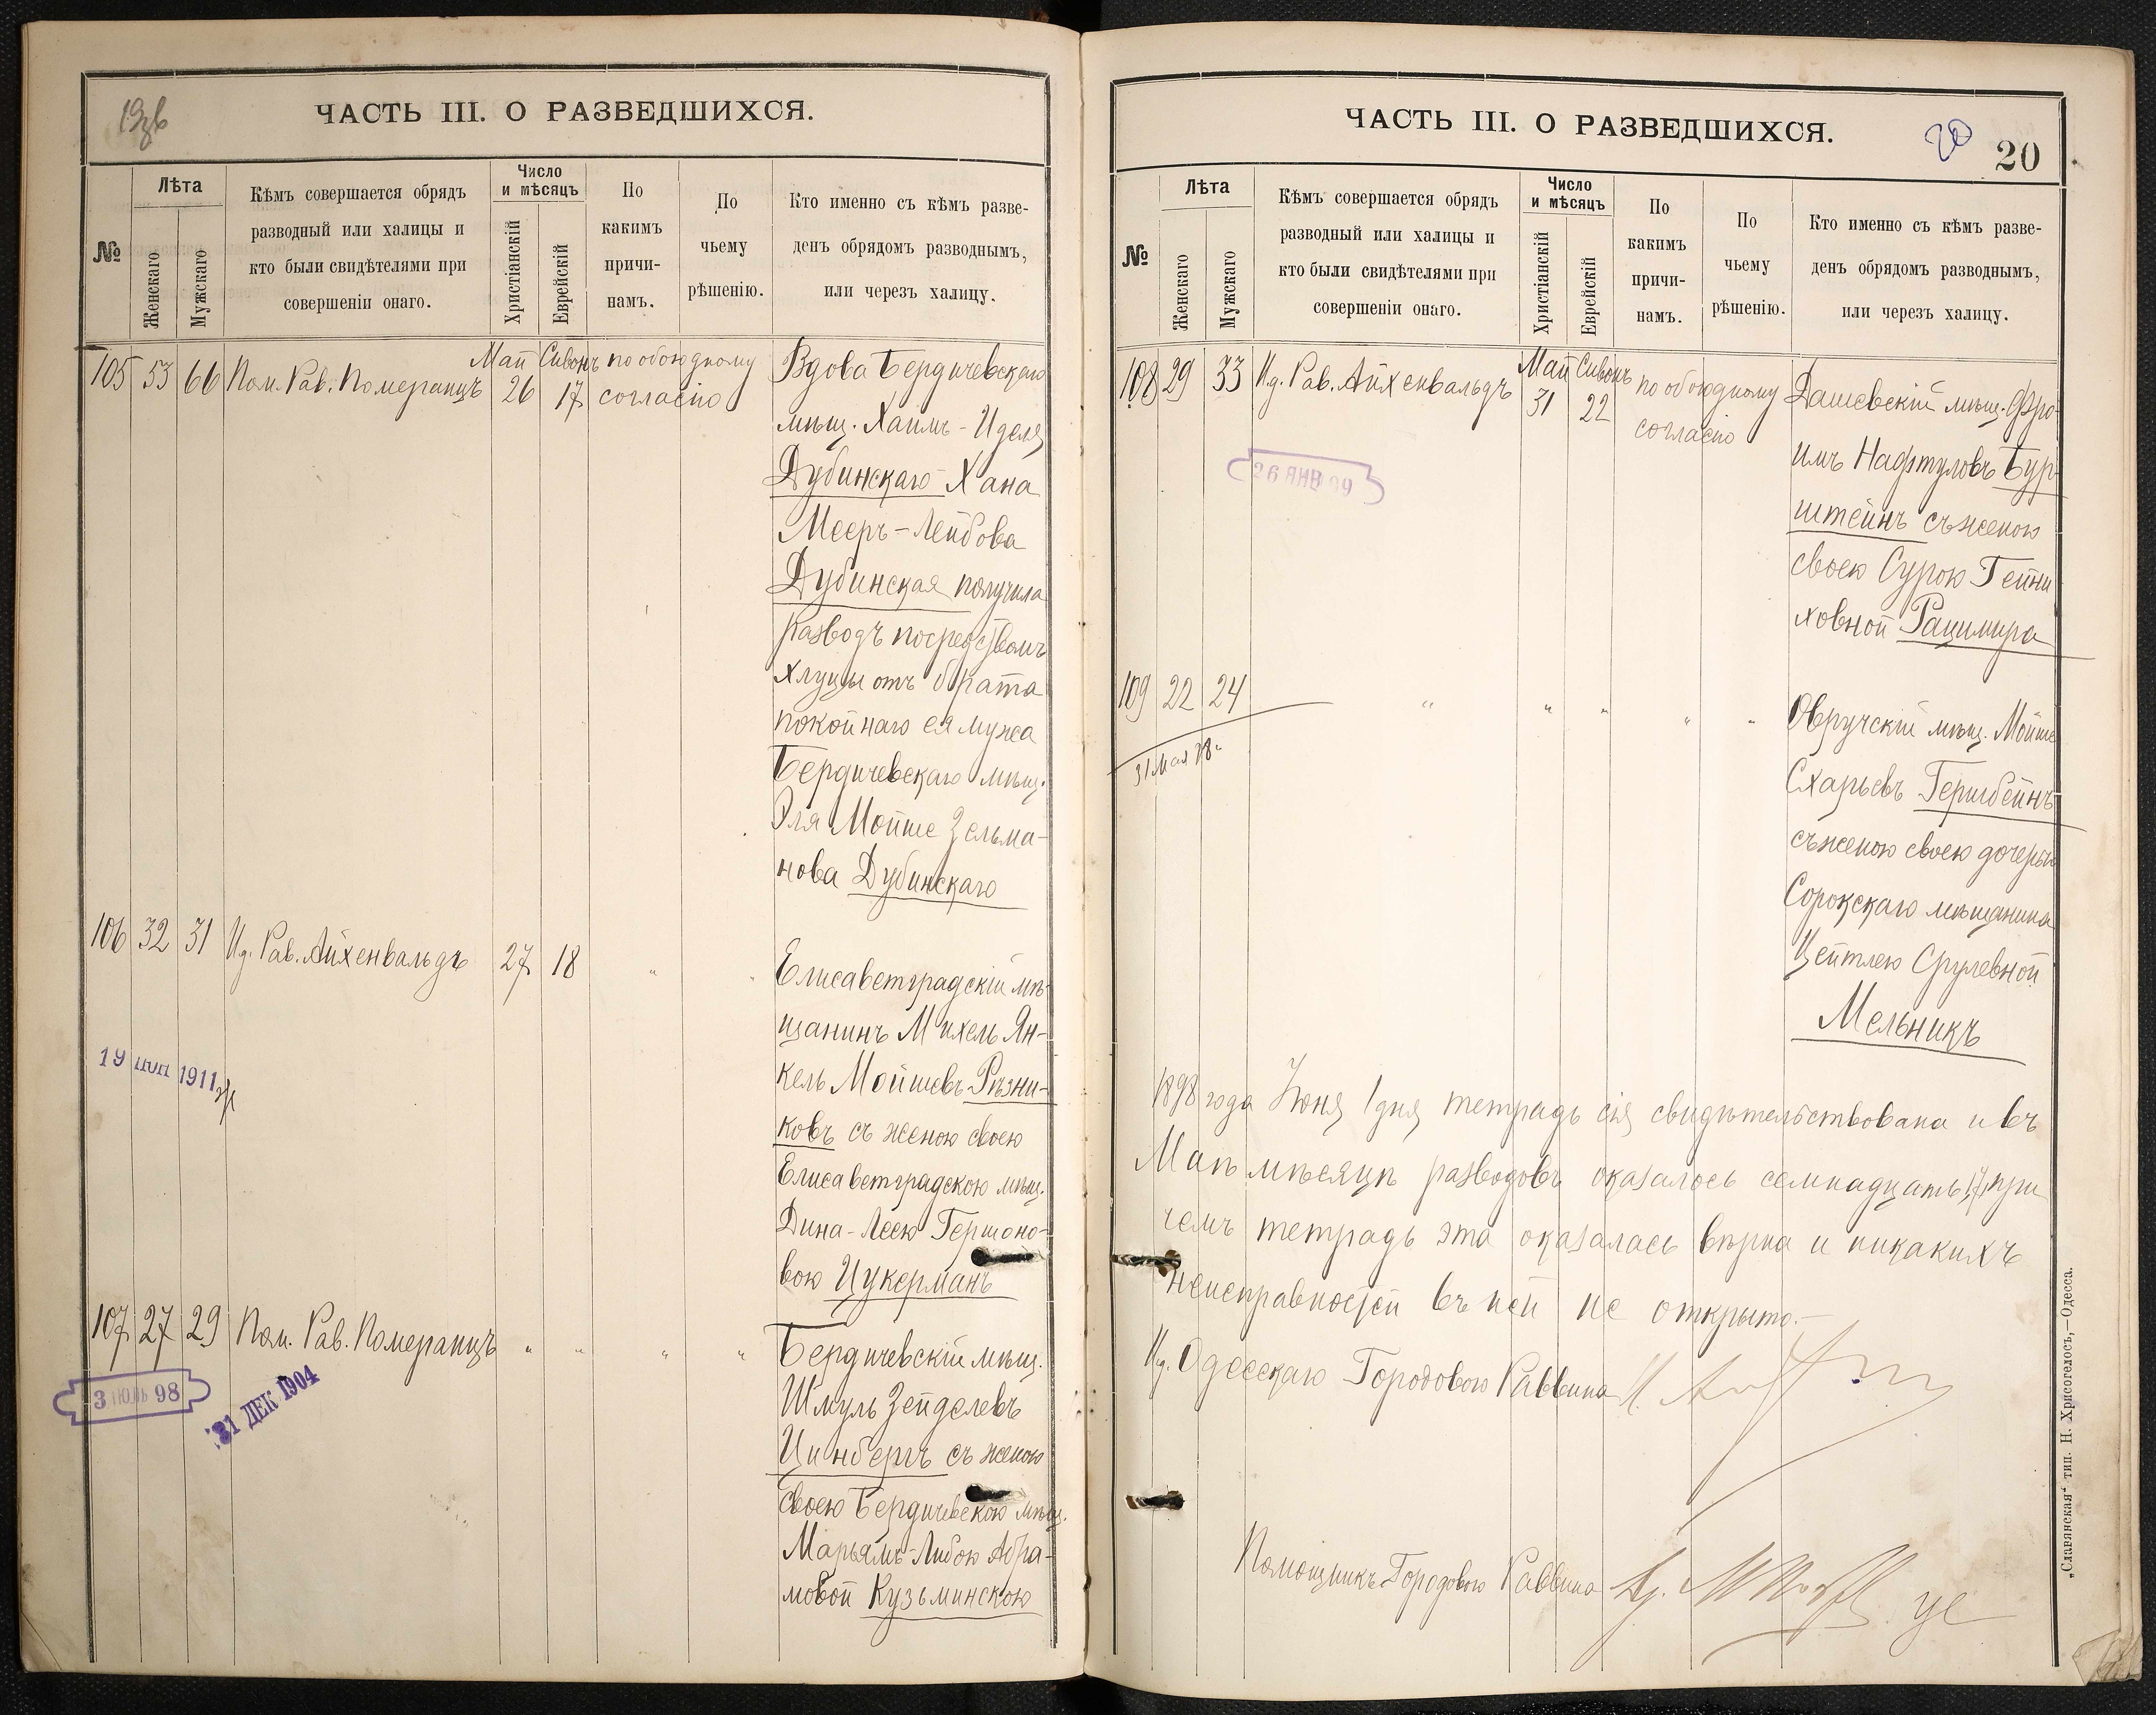 ЧАСТЬ III. О РАЗВЕДШИХСЯ.
№
Лѣта
Женскаго
Мужскаго
Кѣмъ совершается обрядъ
разводный или халицы и
кто были свидѣтелями при
совершеніи онаго.
Число
и мѣсяцъ
Христіанскій
Еврейскій
По
какимъ
причи-
намъ.
По
чьему
рѣшенію.
Кто именно съ кѣмъ разве-
денъ обрядомъ разводнымъ,
или черезъ халицу.
105 53 66 Пом. Рав. Померанцъ Май 26 Сивонъ 17 по обоюдному
согласію
Вдова Бердичевскаго
мѣщ. Хаимъ-Иделя
Дубинскаго Хана
Мееръ-Лейбова
Дубинская получила
разводъ посредствомъ
хлуцы отъ брата
покойнаго ея мужа
Бердичевскаго мѣщ.
Эля Мойше Зельма-
нова Дубинскаго
106 32 31 И.д. Рав. Айхенвальдъ 27 18 " "
Елисаветградскій мѣ-
щанинъ Михель Ян-
кель Мойшевъ Рѣзни-
ковъ съ женою своею
Елисаветградскою мѣщ.
Дина-Леею Гершоно-
вою Цукерманъ
19 1911
107 27 29 Пом. Рав. Померанцъ " " " "
Бердичевскій мѣщ.
Шмуль Зейделевъ
Цинбергъ съ женою
своею Бердичевскою мѣщ.
Марьямъ-Либою Абра-
мовой Кузьминскою
3 ІЮЛЬ 98
31 ДЕК 1904
ЧАСТЬ III. О РАЗВЕДШИХСЯ.
20
20
№
Лѣта
Женскаго
Мужскаго
Кѣмъ совершается обрядъ
разводный или халицы и
кто были свидѣтелями при
совершеніи онаго.
Число
и мѣсяцъ
Христіанскій
Еврейскій
По
какимъ
причи-
намъ.
По
чьему
рѣшенію.
Кто именно съ кѣмъ разве-
денъ обрядомъ разводнымъ,
или черезъ халицу.
108 29 33 И.д. Рав. Айхенвальдъ Май 31 Сивонъ 22 по обоюдному
согласію
Дашевскій мѣщ. Фро-
имъ Нафтуловъ Бур-
штейнъ съ женою
своею Сурою Гейни
ховной Рацимира
26 ЯНВ 99
109 22 24 " " " " "
Овручскій мѣщ. Мойше
Схарьевъ Геришбейнъ
съ женою своею дочерью
Сорокскаго мѣщанина
Цейтлею Срулевной
Мельникъ
31 Мая 98 г.
1898 года Іюня 1 дня тетрадь сія свидѣтельствована и въ
Маѣ мѣсяцѣ разводовъ оказалось семнадцать, 17, при
чемъ тетрадь эта оказалась вѣрна и никакихъ
неисправностей въ ней не открыто.—
И.д. Одесскаго Городового Раввина
Помощникъ Городового Раввина
„Славянская“ тип. Н. Хрисогелосъ,—Одесса.